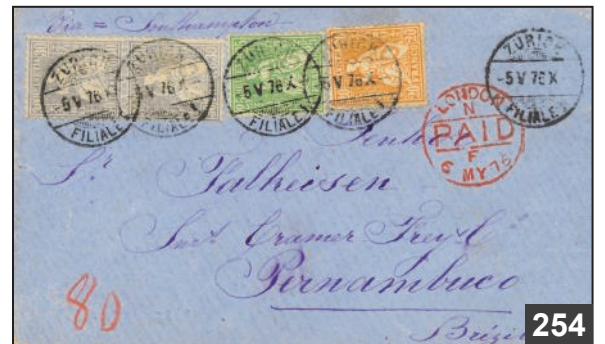 Via = Southampton
ZÜRICH
-5 V 76 X
FILIALE 1
ZÜRICH
-5 V 76 X
FILIALE 1
ZÜRICH
-5 V 76 X
FILIALE 1
ZÜRICH
-5 V 76 X
FILIALE 1
ZÜRICH
-5 V 76 X
FILIALE 1
LONDON
N
PAID
F
6 MY 76
Sr.
Cramer Frey & C
Pernambuco
80
254